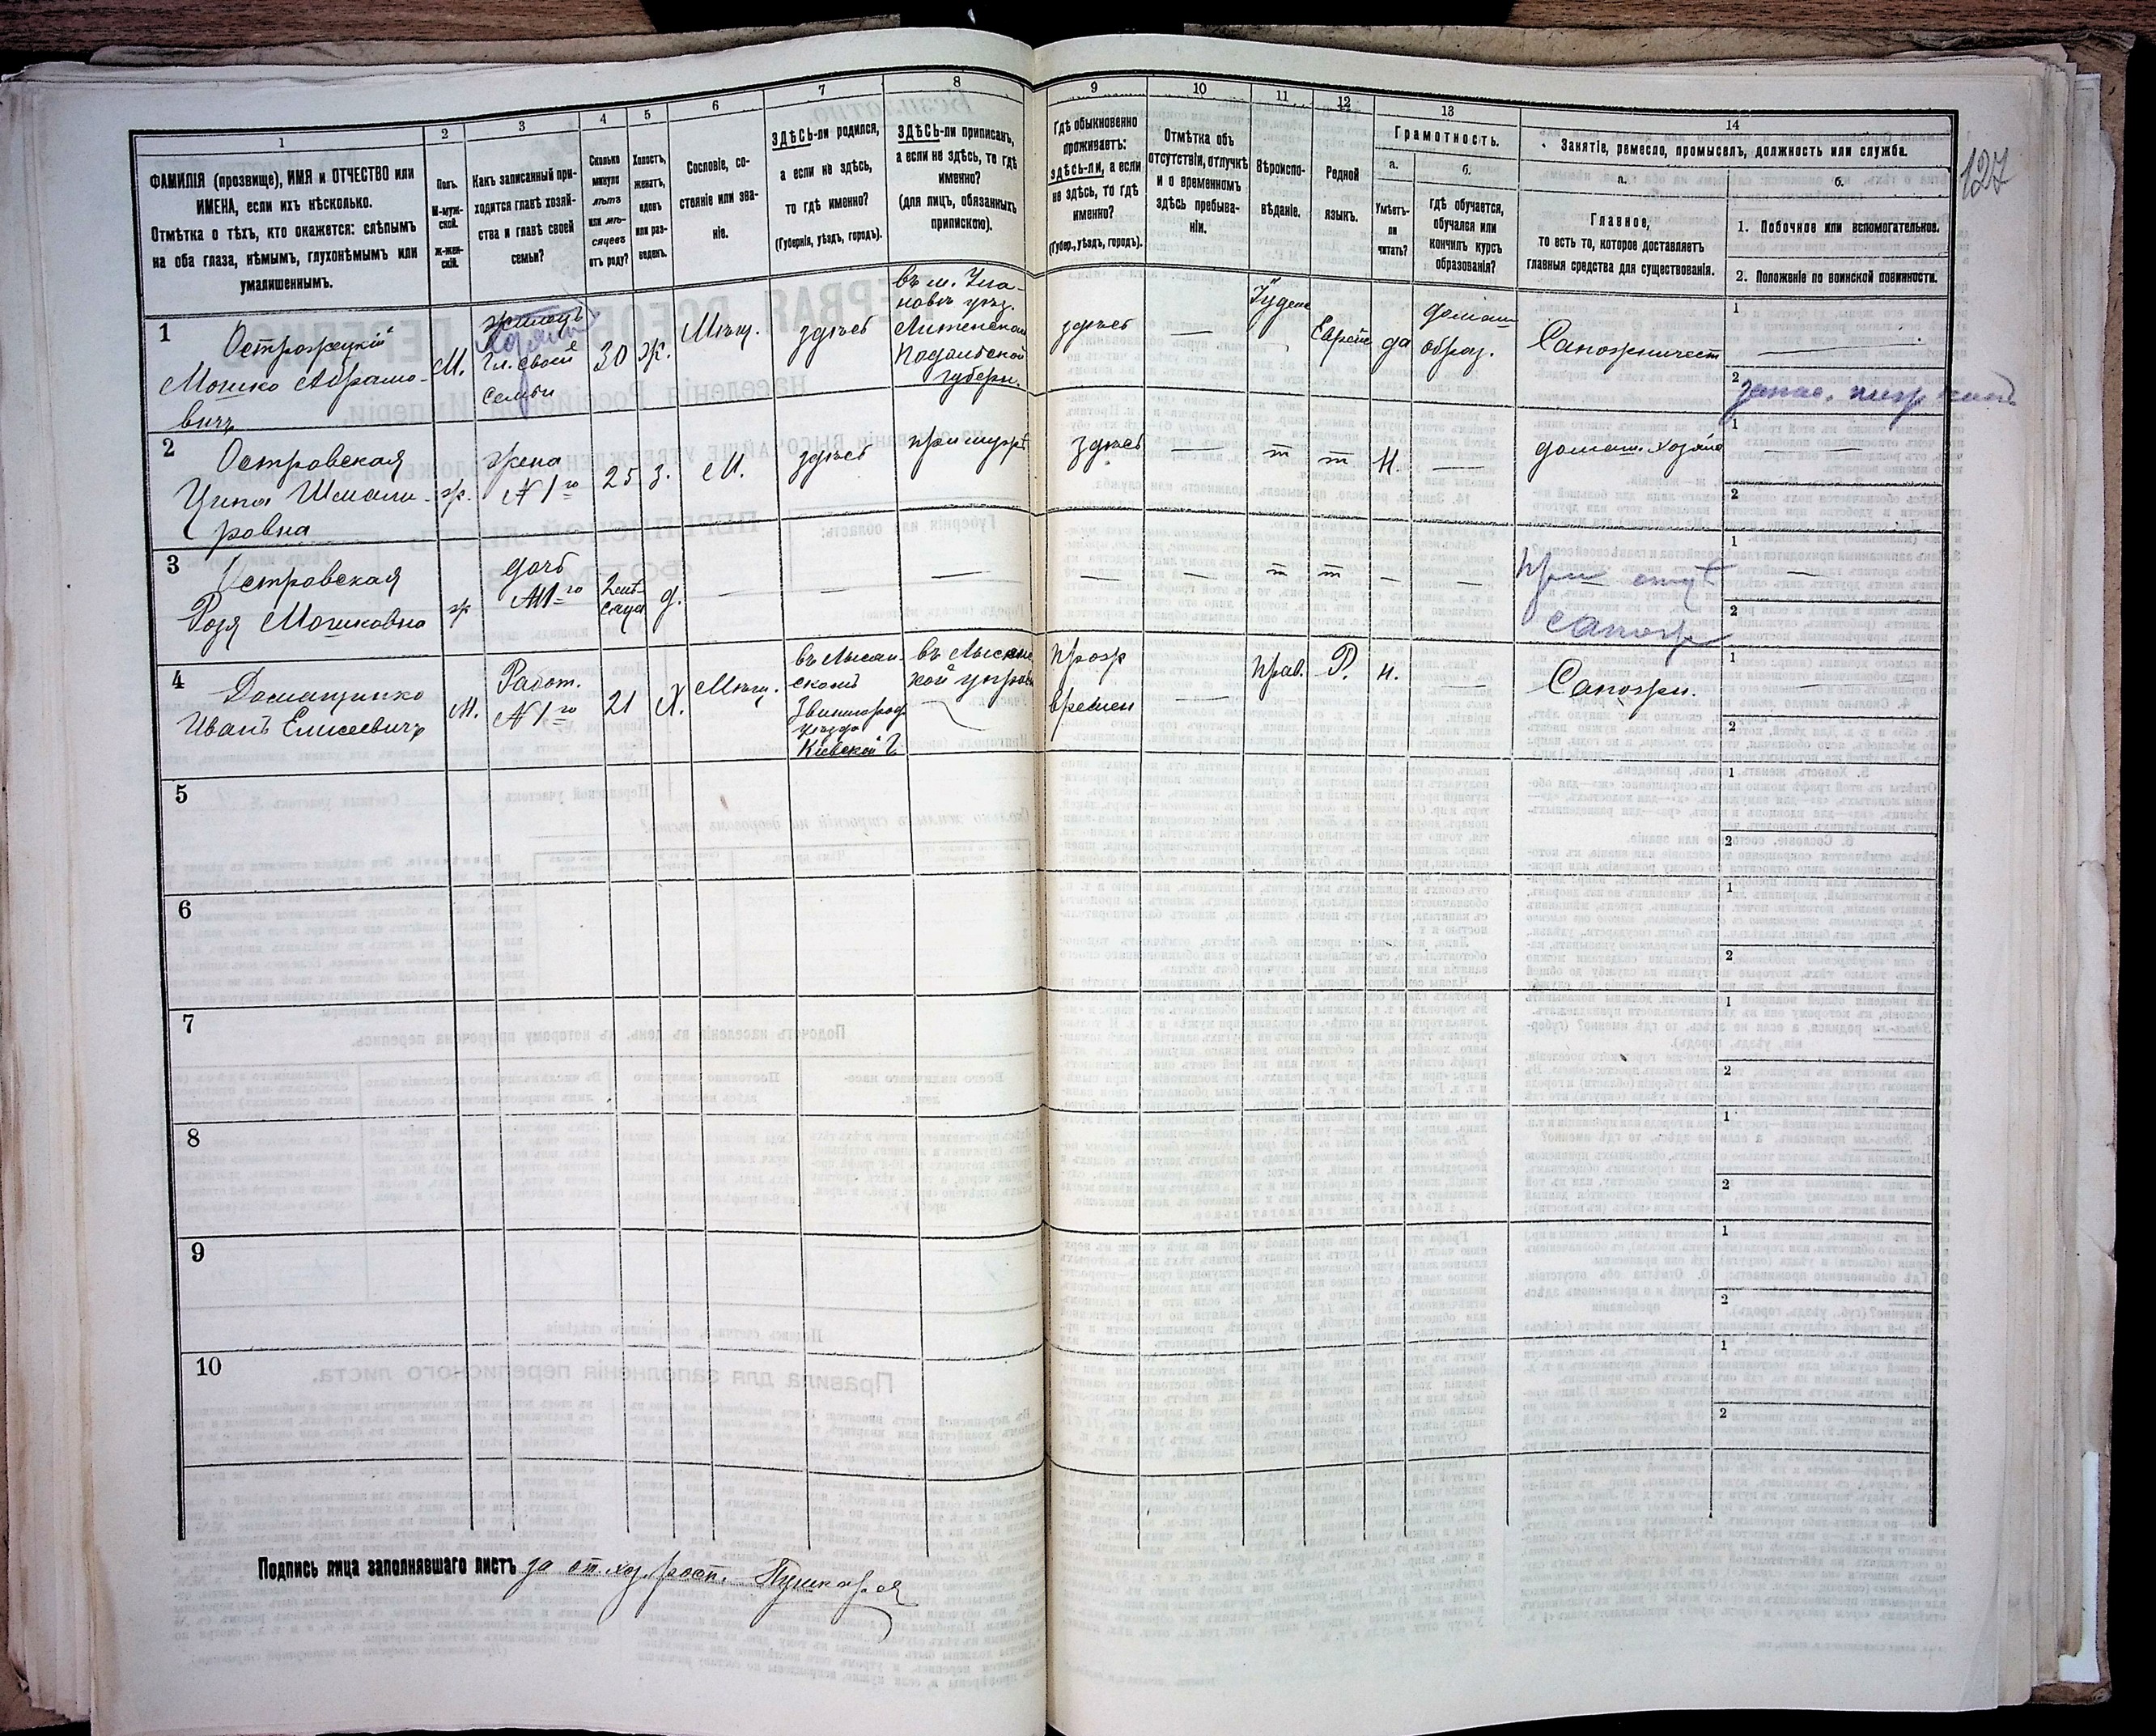 1
2
3
4
5
6
7
8
9
10
11
12
13
14
127
ФАМИЛІЯ (прозвище), ИМЯ и ОТЧЕСТВО или
ИМЕНА, если ихъ нѣсколько.
Отмѣтка о тѣхъ, кто окажется: слѣпымъ
на оба глаза, нѣмымъ, глухонѣмымъ или
умалишеннымъ.
Полъ.
М-муж-
ской.
Ж-жен-
скій.
Какъ записанный при-
ходится главѣ хозяй-
ства и главѣ своей
семьи?
Сколько
минуло
лѣтъ
или мѣ-
сяцевъ
отъ роду?
Холостъ,
женатъ,
вдовъ
или раз-
веденъ.
Сословіе, со-
стояніе или зва-
ніе.
ЗДѢСЬ-ли родился,
а если не здѣсь,
то гдѣ именно?
(Губернія, уѣздъ, городъ).
ЗДѢСЬ-ли приписанъ,
а если не здѣсь, то гдѣ
именно?
(для лицъ, обязанныхъ
припискою).
Гдѣ обыкновенно
проживаетъ:
здѣсь-ли, а если
не здѣсь, то гдѣ
именно?
(Губер., уѣздъ, городъ).
Отмѣтка объ
отсутствіи, отлучкѣ
и о временномъ
здѣсь пребыва-
ніи.
Вѣроиспо-
вѣданіе.
Родной
языкъ.
Грамотность.
а.
Умѣетъ-
ли
читать?
б.
гдѣ обучается,
обучался или
кончилъ курсъ
образованія?
Занятіе, ремесло, промыселъ, должность или служба.
а.
Главное,
то есть то, которое доставляетъ
главныя средства для существованія.
б.
1. Побочное или вспомогательное.
2. Положеніе по воинской повинности.
1
Мошко Абрамо-
вичъ
М.
Гл. своей
семьи
30
Ж.
Мѣщ.
здѣсь
въ м.
Литинскаго
Подольской
губерн.
здѣсь
—
да
домаш
образ.
1
—
2
2
Островская
Ципа
ровна
ж.
жена
№ 1го
25
З.
М.
здѣсь
при мужѣ
здѣсь
—
т
т
Н.
—
домаш. хозяй
1
— —
2
3
Островская
Розя Мошковна
ж
дочь
№1го
2 мѣ-
сяца
д.
—
—
—
—
—
т
т
—
—
При отцѣ
сапож
1
—
2
4
Иванъ Елисеевичъ
М.
Работ.
№ 1го
21
Х.
Мѣщ.
въ Лысян-
скомъ
Звенигород
уѣзда
Кіевской г.
въ Лысян
кой управѣ
прож
времен
—
прав.
Р.
н.
—
Сапожн.
1
—
2
5
1
2
6
1
2
7
1
2
8
1
2
9
1
2
10
1
2
Подпись лица заполнявшаго листъ за